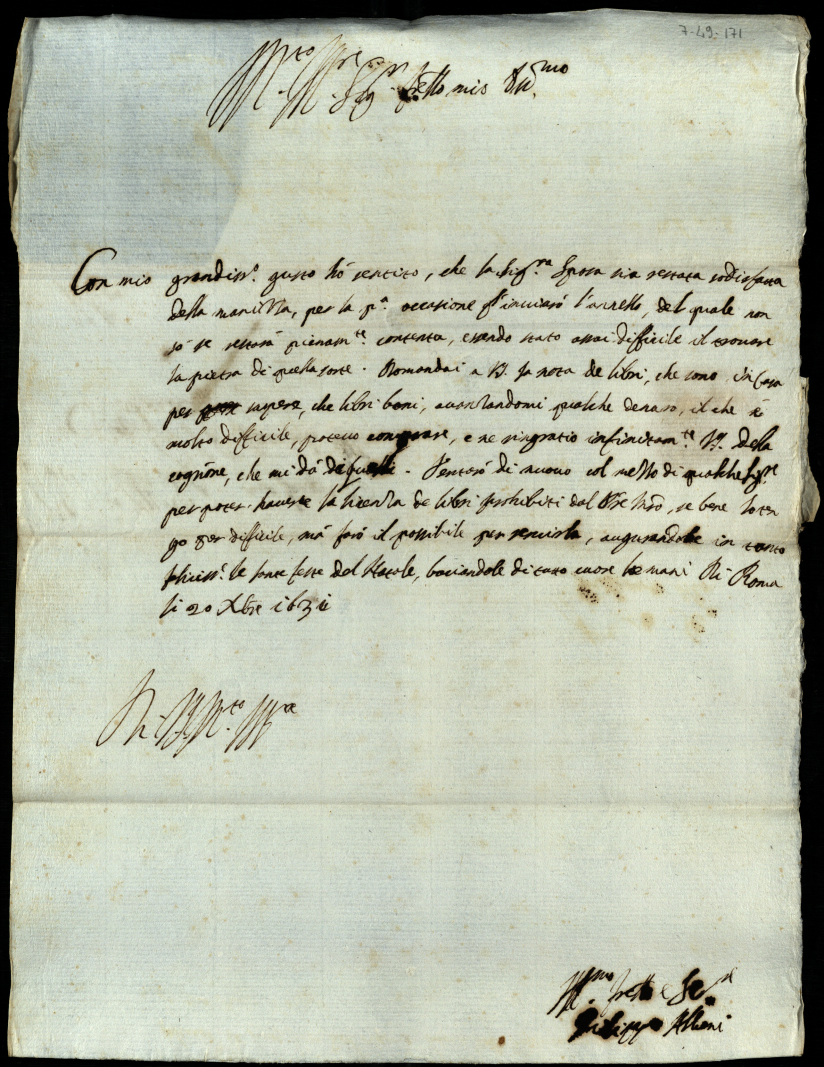 7-49-171
M.to M.re Sig.r fr̃ello mio Oss.mo
Con mio grandiss.o gusto hò sentito, che la Sig.ra Sposa sia restata sodisfatta
della maniglia, per la p.a occasione gl'inviarò l'annello, del quale non
sò se restarà pienam.te contenta, essendo stato assai difficile il trovare
la pietra di quella sorte. Rimandai a V.S. la nota de libri, che sono in casa
per sapere, che libri boni, avanzandomi qualche denaro, il che è
molto difficile, potevo comprare, e ne ringratio infinitam.te V.S. della
cognõne, che mi dà di quelli. Tentarò di nuovo col mezzo di qualche Sig.re
per poter havere la licenza de libri prohibiti dal Pre Mrõ, se bene lo ten
go per difficile, mà farò il possibile per servirla, augurandole in tanto
feliciss.e le sante feste del Natale, baciandole di tutto cuore le mani Di Roma
li 20 Xbre 1631
Di V.S. M.to M.re
Aff.mo fr̃ello e Se.r
Filippo Albani